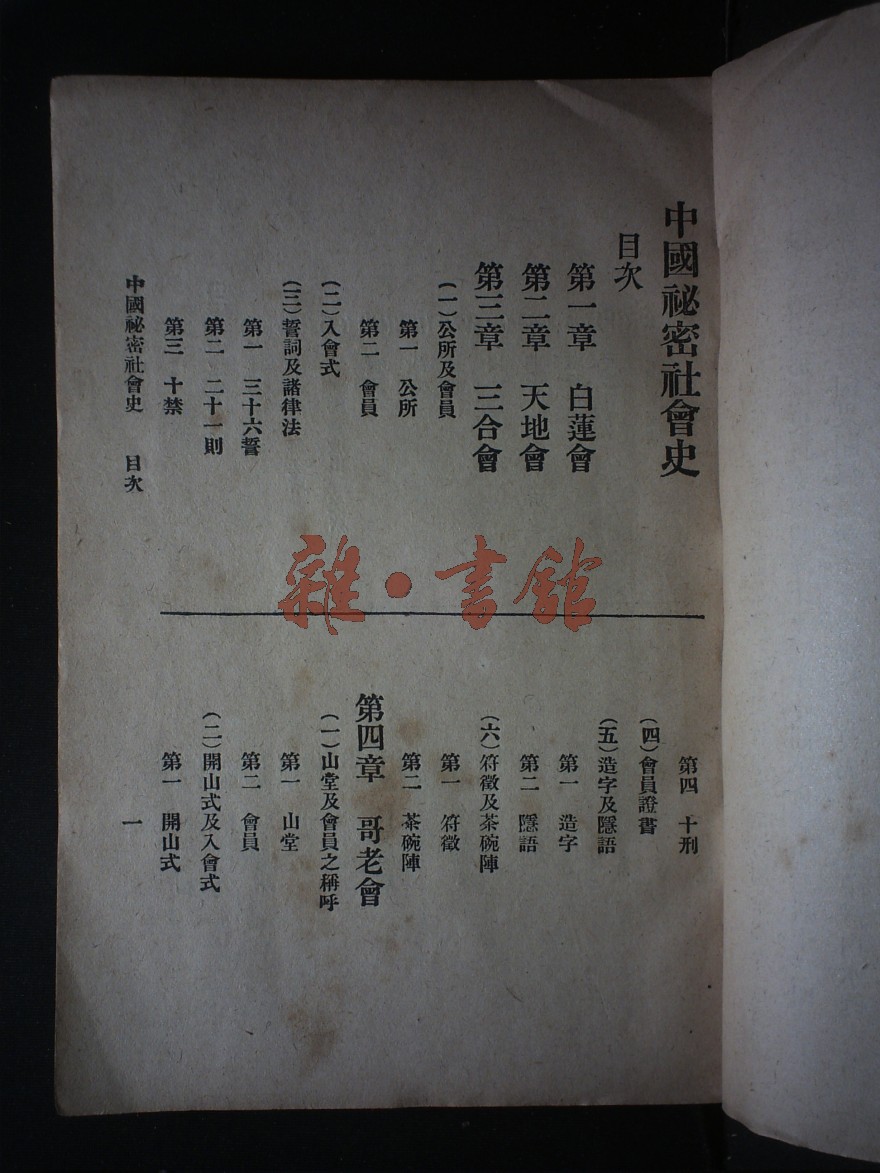 中國祕密社會史
目次
第一章 白蓮會
第二章 天地會
第三章 三合會
(一)公所及會員
第一 公所
第二 會員
(二)入會式
(三)誓詞及諸律法
第一 三十六誓
第二 二十一則
第三 十禁
第四 十刑
(四)會員證書
(五)造字及隱語
第一 造字
第二 隱語
(六)符徵及茶碗陣
第一 符徵
第二 茶碗陣
第四章 哥老會
(一)山堂及會員之稱呼
第一 山堂
第二 會員
(二)開山式及入會式
第一 開山式
中國祕密社會史 目次 一
雜·書館